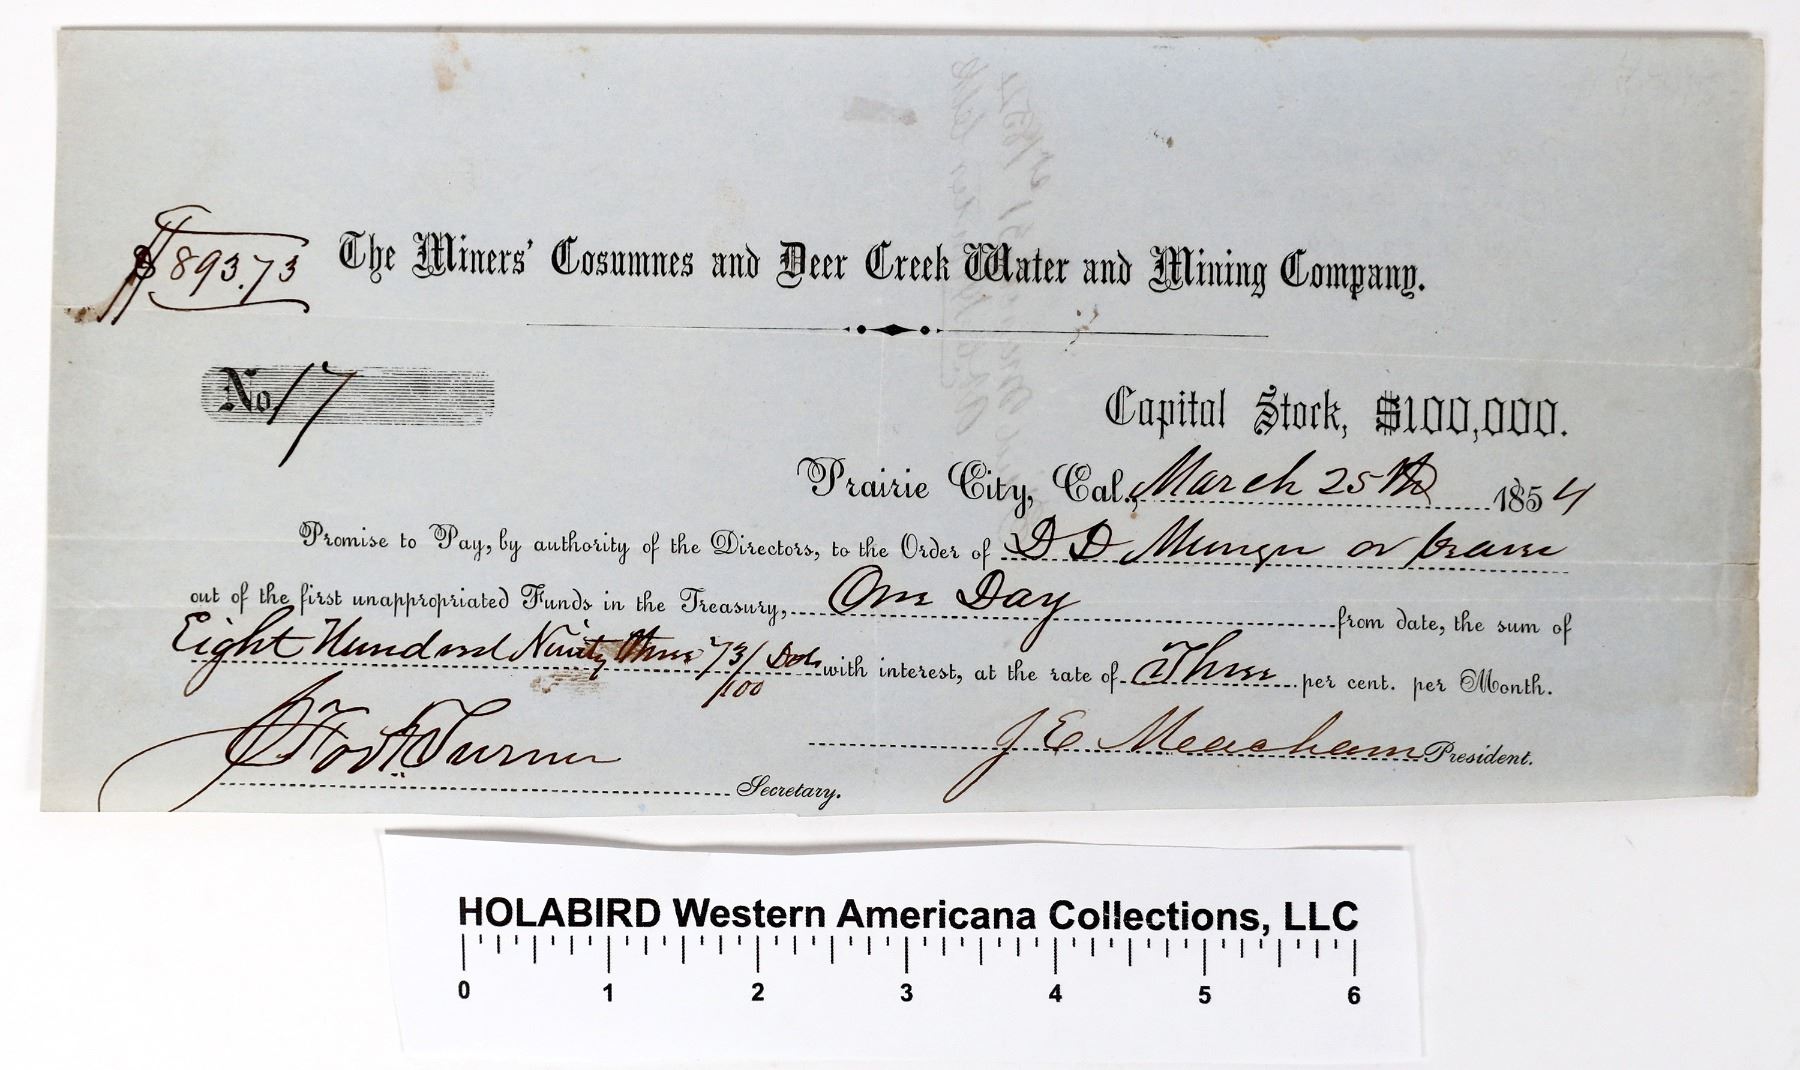 $893.73
The Miners' Cosumnes and Deer Creek Water and Mining Company.
No. 17
Capital Stock, $100,000.
Prairie City, Cal., March 25th 1854
Promise to Pay, by authority of the Directors, to the Order of D D Munger or bearer
out of the first unappropriated Funds in the Treasury, One Day from date, the sum of
Eight Hundred Ninety Three 73/100 Dols with interest, at the rate of Three per cent. per Month.
J E Meacham President.
Turner Secretary.
HOLABIRD Western Americana Collections, LLC
0 1 2 3 4 5 6